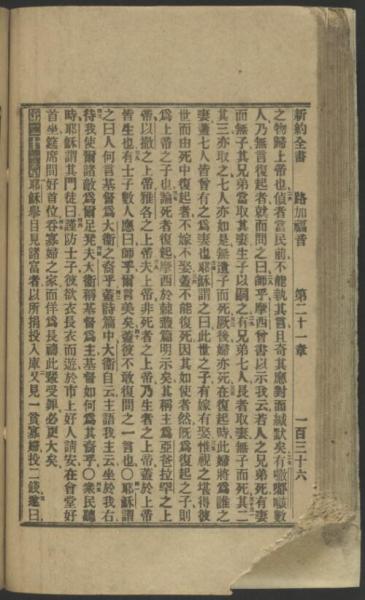 新約全書 路加福音 第二十一章 一百三十六
之物歸上帝也偵者當民前不能執其言且奇其應對而緘默矣有嘅嘟嚷數
人乃無言復起者就而問之曰師乎摩西曾書以示我云若人之兄弟死有妻
而無子其兄弟當取其妻生子以嗣之有兄弟七人長者取妻無子而死其二
其三亦取之七人亦如是無遺子而死厥後婦亦死在復起時此婦將爲誰之
妻蓋七人皆曾有之爲妻也耶穌謂之曰此世之子有嫁有娶惟視之堪得彼
世而由死中復起者不嫁不娶蓋不能復死因其如使者然既爲復起之子則
爲上帝之子也論死者復起摩西於棘叢篇明示矣其稱主爲亞爸拉罕之上
帝以撒之上帝雅各之上帝夫上帝非死者之上帝乃生者之上帝蓋於上帝
皆生也有士子數人應曰師乎爾言美矣蓋彼不敢復問之一言也〇耶穌謂
之曰人何言基督爲大衛之裔乎蓋詩篇中大衛自云主語我主云坐於我右
待我使爾諸敵爲爾足凳夫大衛稱基督爲主基督如何爲其裔乎〇衆民聽
時耶穌謂其門徒曰謹防士子彼欲衣長衣而遊於市上好人請安在會堂好
首坐筵席間好首位吞寡婦之家而佯爲長禱此輩受罪必更大矣
第二十一章耶穌舉目見諸富者以所捐投入庫又見一貧寡婦投二錢遂曰